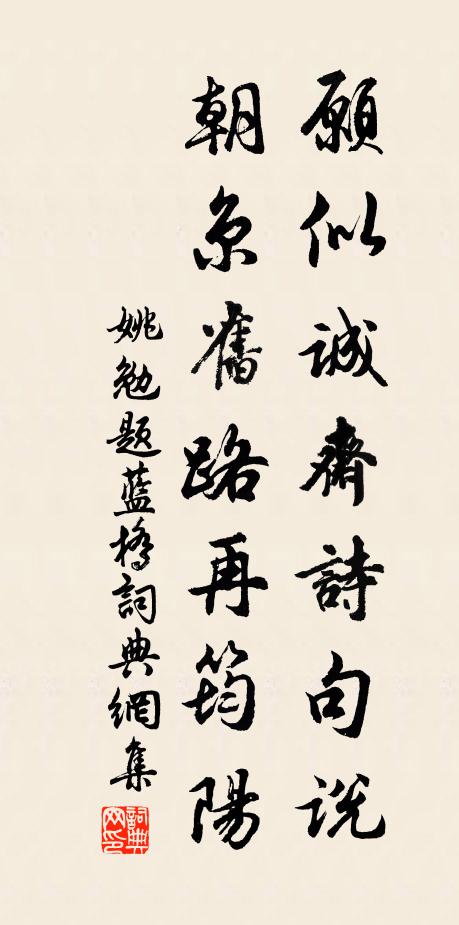 願似誠齋詩句説
朝京舊路再筠陽
姚勉題藍橋詞典網集
詞典网印